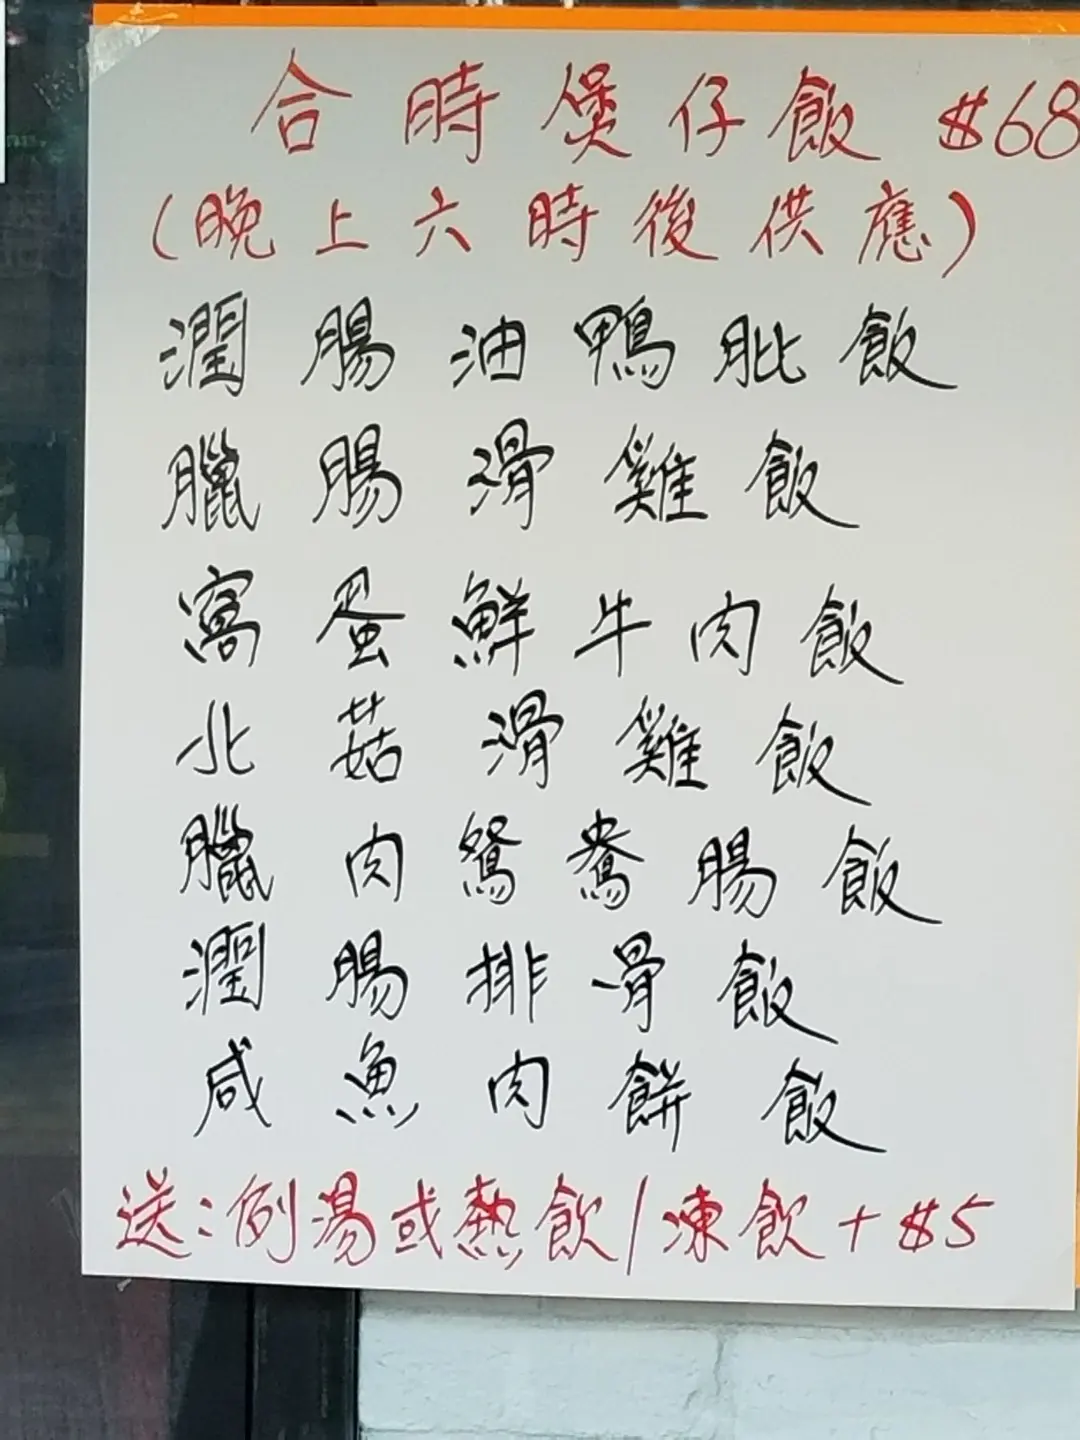 合時煲仔飯 $68
(晚上六時後供應)
潤腸油鴨肶飯
臘腸滑雞飯
窩蛋鮮牛肉飯
北菇滑雞飯
臘肉鴛鴦腸飯
潤腸排骨飯
咸魚肉餅飯
送:例湯或熱飲/凍飲+$5